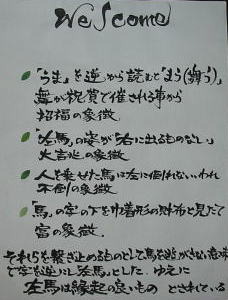 Welcome
「うま」を逆から読むと「まう(舞う)」
舞が祝賀で催される事から
招福の象徴
「左馬」の姿が「右に出るものなし」
大吉兆の象徴
人を乗せた馬は左に倒れないいわれ
不倒の象徴
「馬」の字の下を巾着形の財布と見たて
富の象徴
それらを繋ぎ止めるものとして馬を逃がさない意味
で字を逆にし左馬とした。ゆえに
左馬は縁起の良いもの とされている